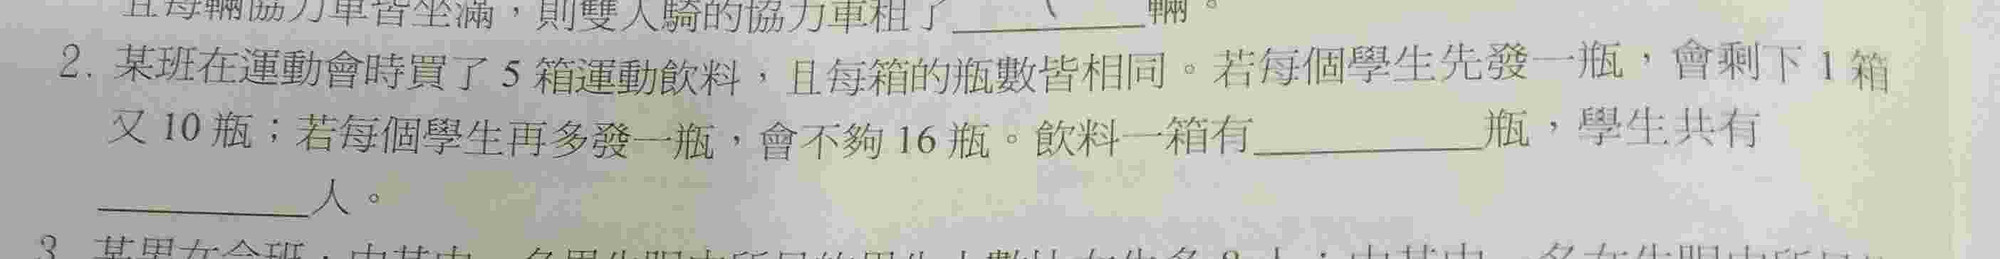 且每輛協力車皆坐滿，則雙人騎的協力車租了__________輛。
2. 某班在運動會時買了 5 箱運動飲料，且每箱的瓶數皆相同。若每個學生先發一瓶，會剩下 1 箱
又 10 瓶；若每個學生再多發一瓶，會不夠 16 瓶。飲料一箱有__________瓶，學生共有
__________人。